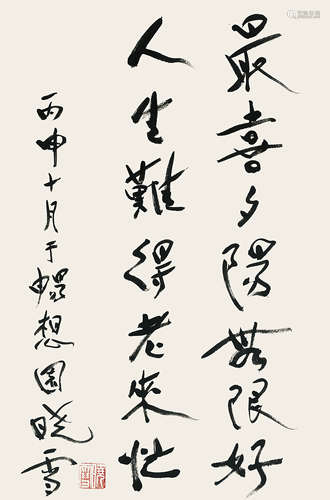 最喜夕陽無限好
人生難得老來忙
丙申十月于暢想園曉雪